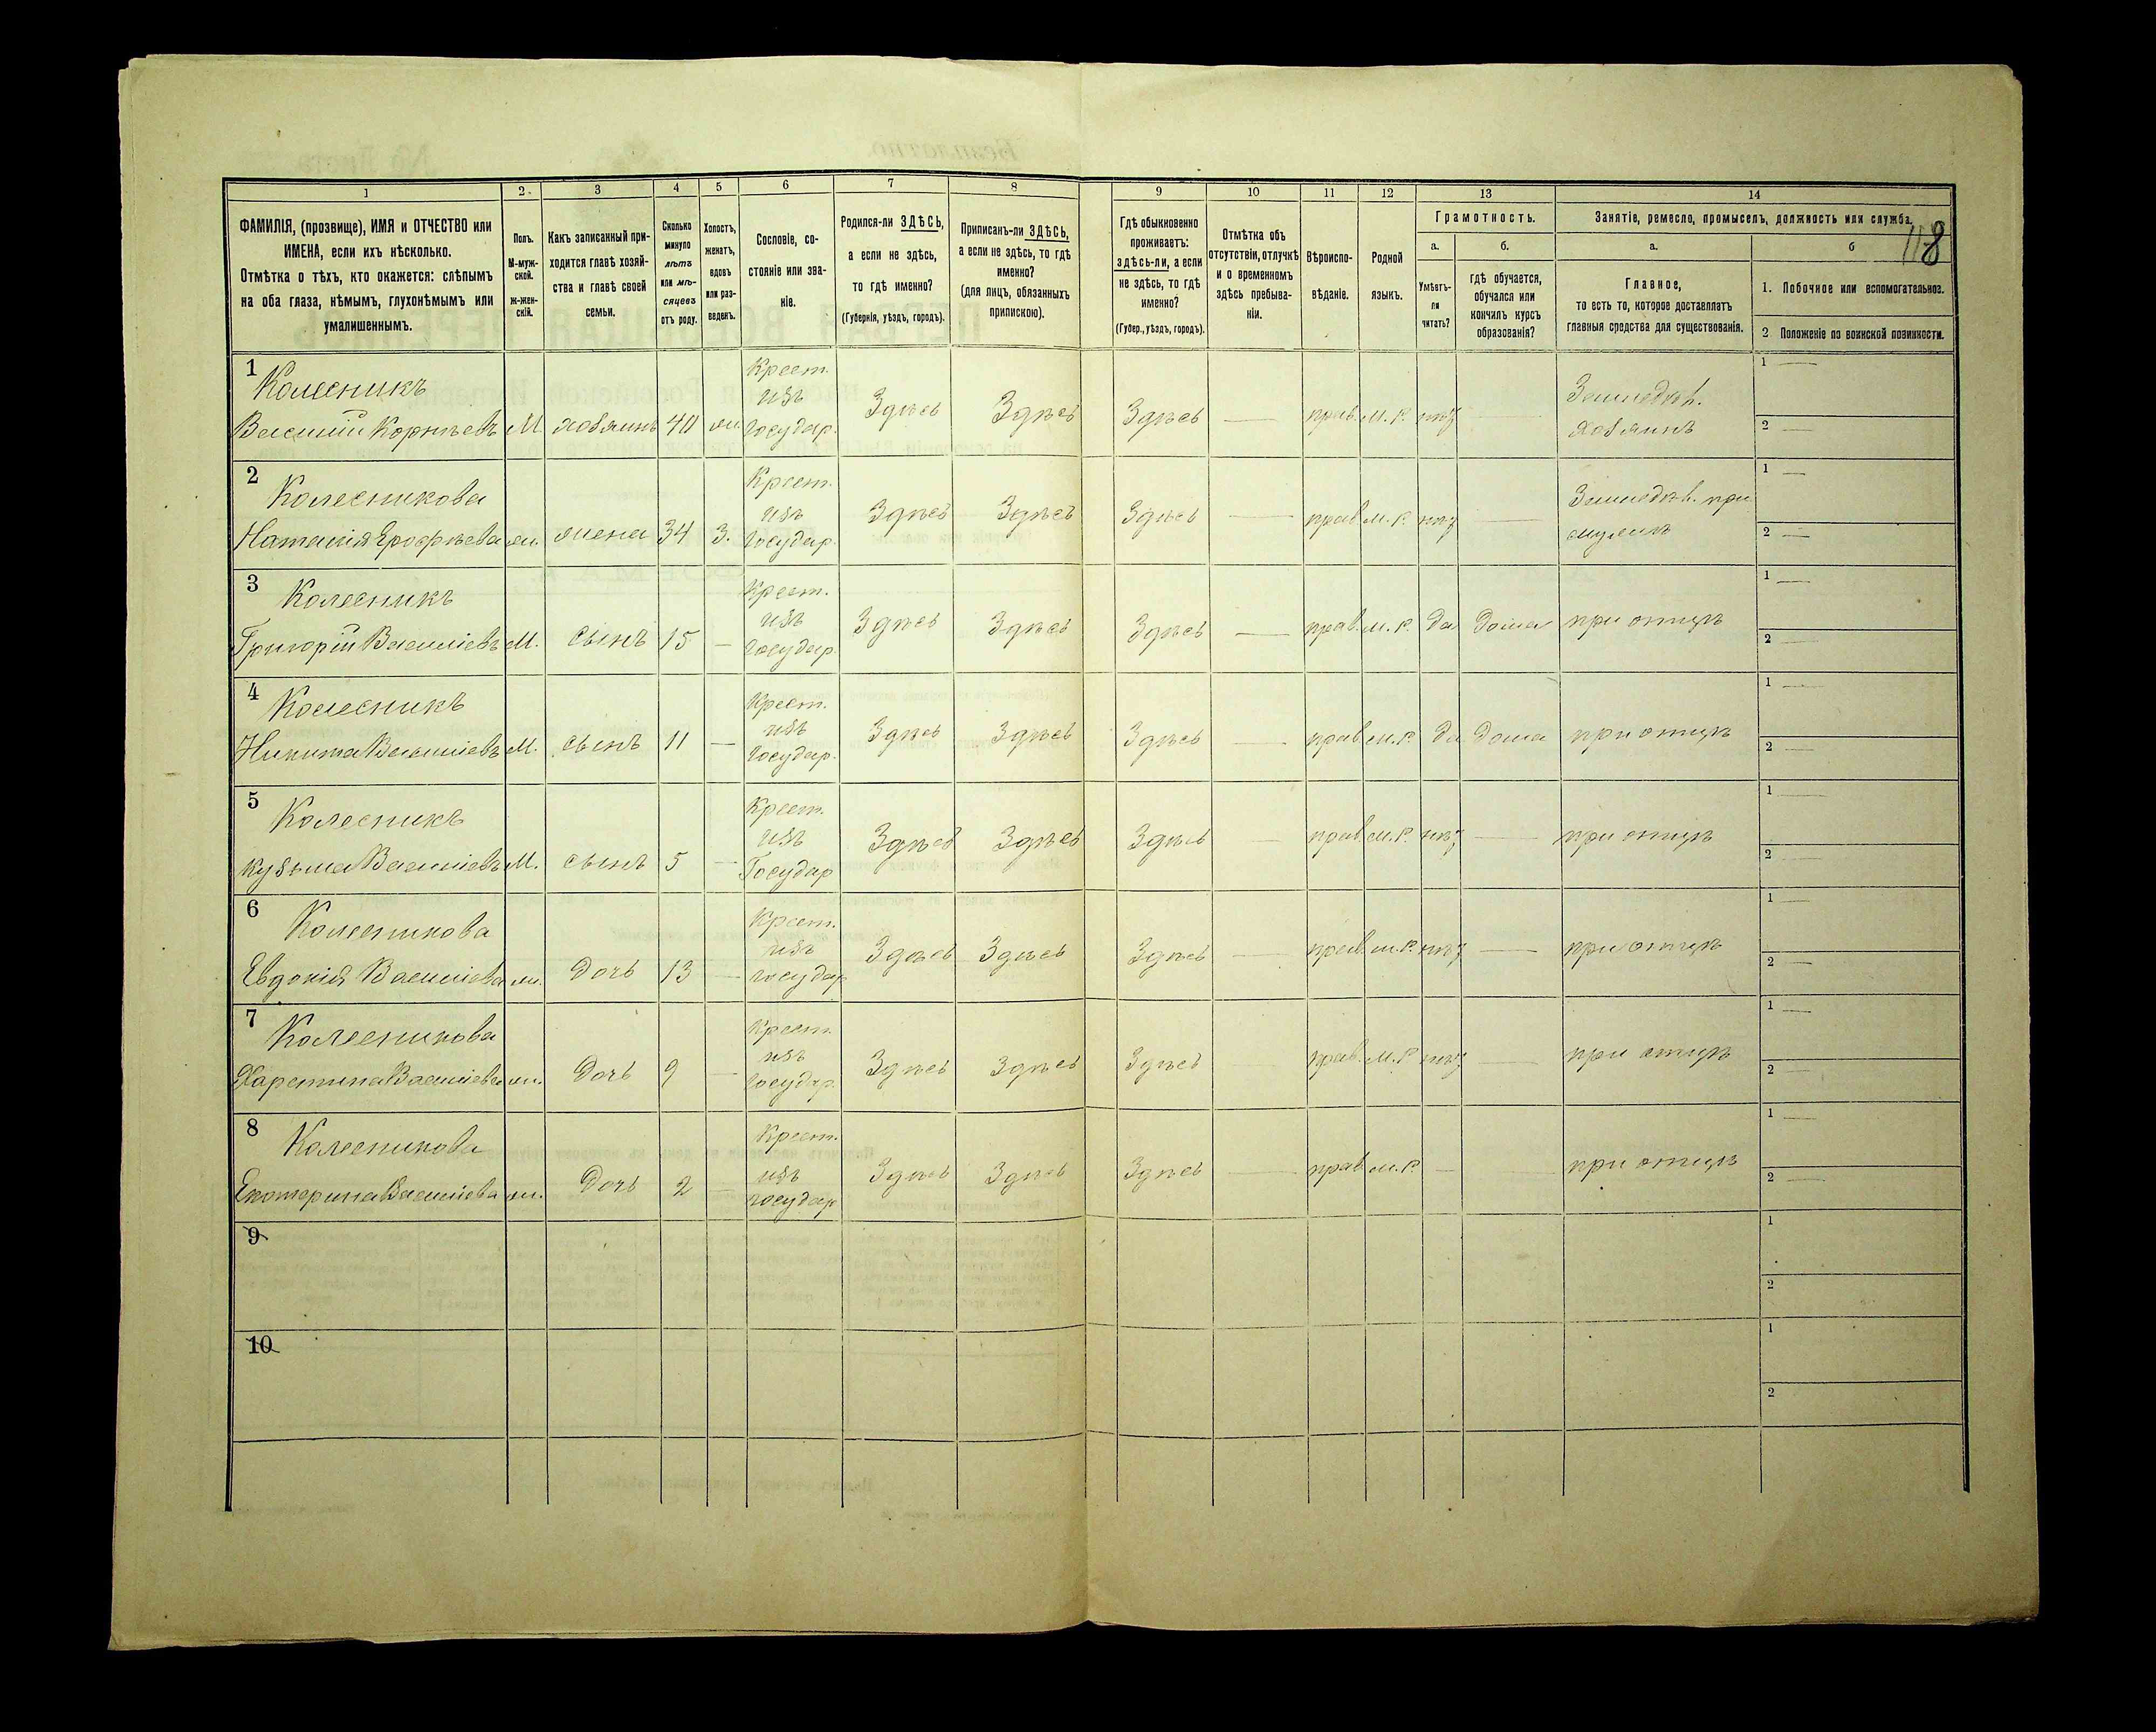 1 2 3 4 5 6 7 8 9 10 11 12 13 14
ФАМИЛІЯ, (прозвище), ИМЯ и ОТЧЕСТВО или
ИМЕНА, если ихъ нѣсколько.
Отмѣтка о тѣхъ, кто окажется: слѣпымъ
на оба глаза, нѣмымъ, глухонѣмымъ или
умалишеннымъ.
Полъ.
М-муж-
ской.
ж-жен-
скій.
Какъ записанный при-
ходится главѣ хозяй-
ства и главѣ своей
семьи.
Сколько
минуло
лѣтъ
или мѣ-
сяцевъ
отъ роду.
Холостъ,
женатъ,
вдовъ
или раз-
веденъ.
Сословіе, со-
стояніе или зва-
ніе.
Родился-ли ЗДѢСЬ,
а если не здѣсь,
то гдѣ именно?
(Губернія, уѣздъ, городъ).
Приписанъ-ли ЗДѢСЬ,
а если не здѣсь, то гдѣ
именно?
(для лицъ, обязанныхъ
припискою).
Гдѣ обыкновенно
проживаетъ:
здѣсь-ли, а если
не здѣсь, то гдѣ
именно?
(Губер., уѣздъ, городъ).
Отмѣтка объ
отсутствіи, отлучкѣ
и о временномъ
здѣсь пребыва-
ніи.
Вѣроиспо-
вѣданіе.
Родной
языкъ.
Грамотность.
а.
Умѣетъ-
ли
читать?
б.
гдѣ обучается,
обучался или
кончилъ курсъ
образованія?
Занятіе, ремесло, промыселъ, должность или служба.
118
а.
Главное,
то есть то, которое доставляетъ
главныя средства для существованія.
б
1. Побочное или вспомогательное.
2 Положеніе по воинской повинности.
1 Колесникъ Крест. 1 —
изъ Земледѣл.
Василій Корнѣевъ М хозяинъ 40 ж. Государ. Здѣсь Здѣсь Здѣсь — прав. м.р. нѣт — Хозяинъ 2 —
2 Колесникова Крест. 1 —
изъ Земледѣл. при
Наталія Ерофѣева ж. жена 34 З. Государ. Здѣсь Здѣсь Здѣсь — прав. м.р. нѣт — мужикѣ 2 —
3 Колесникъ Крест. 1 —
изъ
Григорій Василіевъ М. сынъ 15 — Государ. Здѣсь Здѣсь Здѣсь — прав. м.р. да дома при отцѣ 2 —
4 Колесникъ Крест. 1 —
изъ
Никита Василіевъ М. сынъ 11 — Государ. Здѣсь Здѣсь Здѣсь — прав. м.р. да дома при отцѣ 2 —
5 Колесникъ Крест. 1 —
изъ
Кузьма Василіевъ М. сынъ 5 — Государ Здѣсь Здѣсь Здѣсь — прав. м.р. нѣт — при отцѣ 2 —
6 Колесникова Крест. 1 —
изъ
Евдокія Василіева ж. Дочь 13 — государ Здѣсь Здѣсь Здѣсь — прав. м.р. нѣт — при отцѣ 2 —
7 Колесникова Крест. 1 —
изъ
Харетина Василіева ж. Дочь 9 — государ. Здѣсь Здѣсь Здѣсь — прав. м.р. нѣт — при отцѣ 2 —
8 Колесникова Крест. 1 —
изъ
Екатерина Василіева ж. Дочь 2 — государ Здѣсь Здѣсь Здѣсь — прав. м.р. — — при отцѣ 2 —
9 1
2
10 1
2